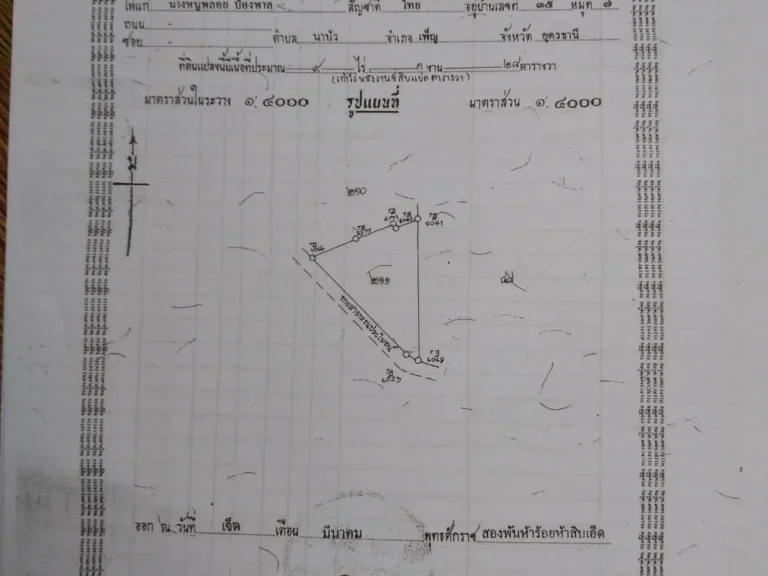 ให้แก่ นางหนูพลอย ป้องพาล สัญชาติ ไทย อยู่บ้านเลขที่ ๓๕ หมู่ที่ ๗
ถนน -
ซอย - ตำบล นาบัว อำเภอ เพ็ญ จังหวัด อุดรธานี
ที่ดินแปลงนี้มีเนื้อที่ประมาณ ๙ ไร่ ๑ งาน ๒๘ ตารางวา
(เก้าไร่หนึ่งงานยี่สิบแปดตารางวา)
มาตราส่วนในระวาง ๑: ๔๐๐๐ รูปแผนที่ มาตราส่วน ๑: ๔๐๐๐
น
๒๑๐
๒๑๑
๕๗
ทางสาธารณประโยชน์
ออก ณ วันที่ เจ็ด เดือน มีนาคม พุทธศักราช สองพันห้าร้อยห้าสิบเอ็ด